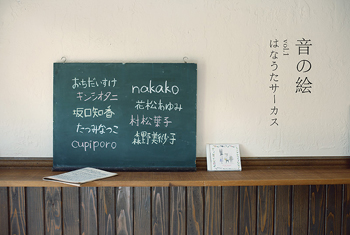 音の絵
vol.1
はなうたサーカス
おちだいすけ
キンシオタニ
坂口知香
たつみなつこ
cupiporo
nakako
花松あゆみ
村松葉子
森野美紗子